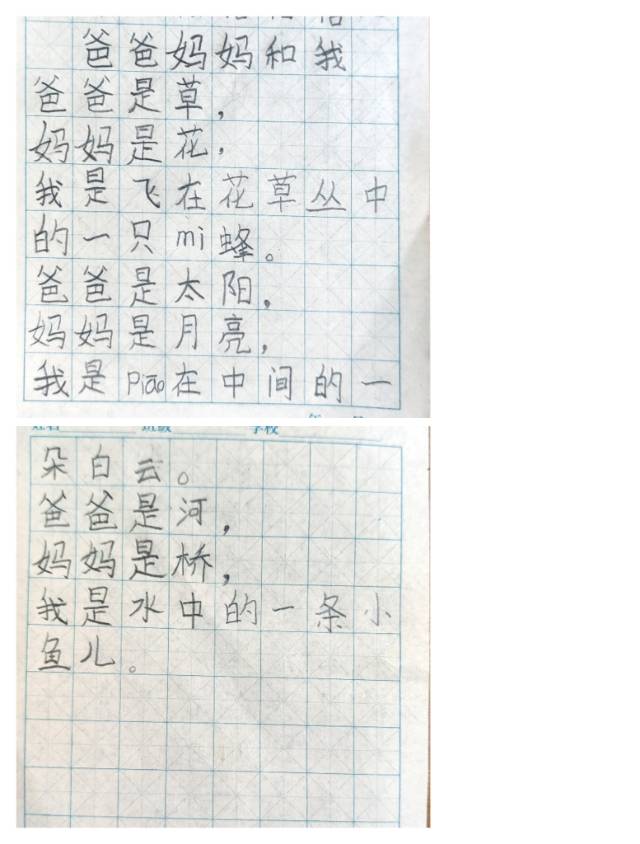 爸爸妈妈和我
爸爸是草，
妈妈是花，
我是飞在花草丛中
的一只mì蜂。
爸爸是太阳，
妈妈是月亮，
我是piāo在中间的一
学校
朵白云。
爸爸是河，
妈妈是桥，
我是水中的一条小
鱼儿。